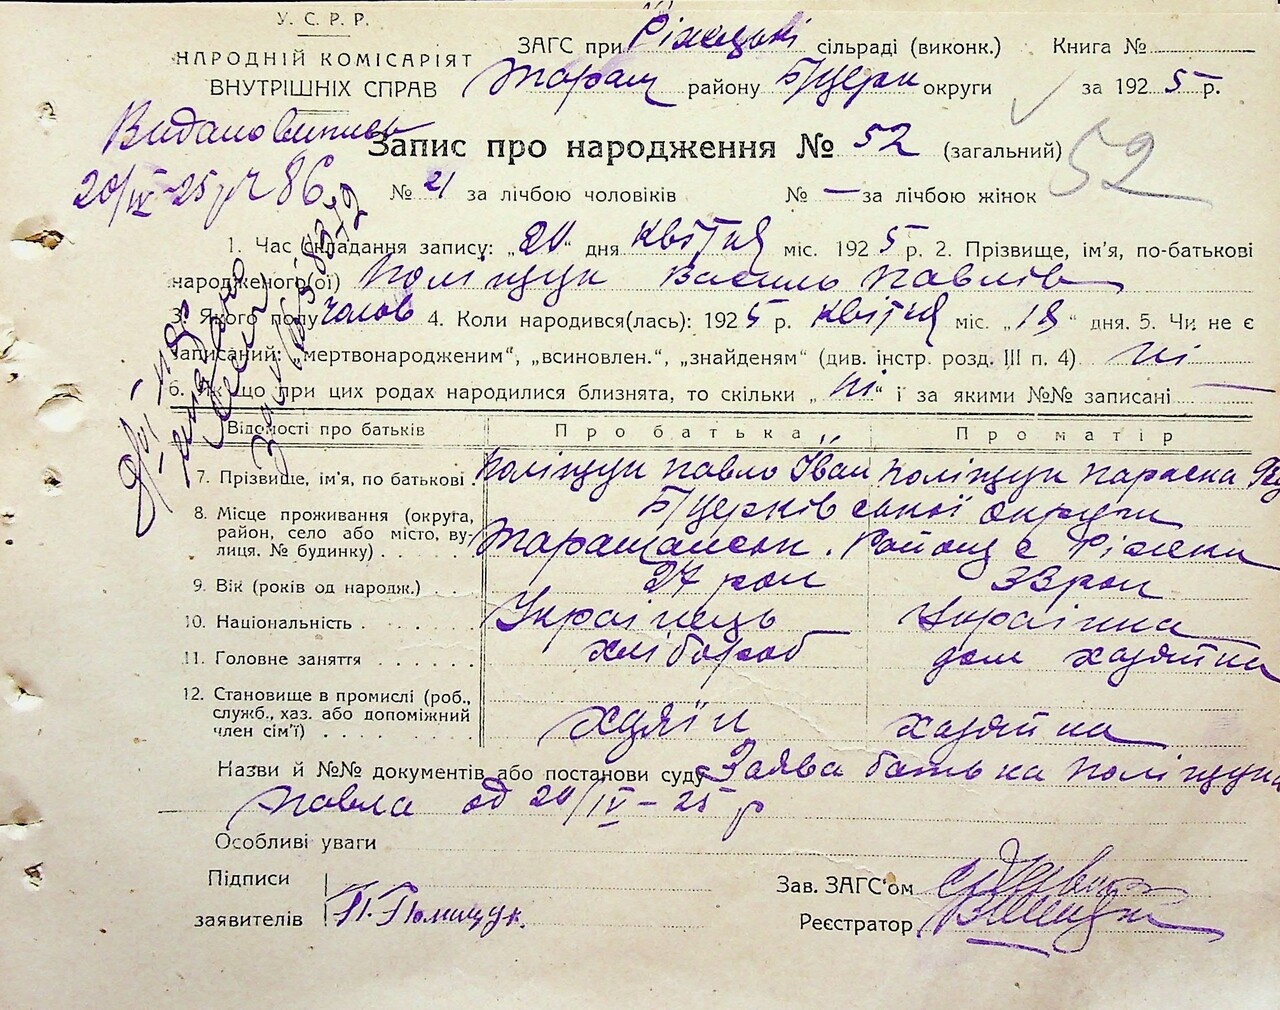 У. С. Р. Р.
НАРОДНІЙ КОМІСАРІЯТ
ВНУТРІШНІХ СПРАВ
ЗАГС при сільраді (виконк.) Книга №
Таращ району Б/церк округи за 1925 р.
Видано виписъ
20/IV-25 р № 86
Запис про народження № 52 (загальний) 52
№ 21 за лічбою чоловіків № — за лічбою жінок
1. Час складання запису: „20“ дня квітня міс. 1925 р. 2. Прізвище, ім'я, по-батькові
народженого(ої) Поліщук Василь Павлів
3. Якого полу чолов 4. Коли народився(лась): 1925 р. квітня міс. „18“ дня. 5. Чи не є
записаний: „мертвонародженим“, „всиновлен.“, „знайденям“ (див. інстр. розд. III п. 4) ні
6. Якщо при цих родах народилися близнята, то скільки „ні“ і за якими №№ записані —
Відомості про батьків Про батька Про матір
7. Прізвище, ім'я, по батькові . Поліщук Павло Іван Поліщук Параска
8. Місце проживання (округа, район, село або місто, вулиця. № будинку) . . Б/церківської округи
Таращанськ. Району с Ріжки
9. Вік (років од народж.) . . 27 рок 33 рок
10. Національність . . . . . . Українець Українка
11. Головне заняття . . . . . . хлібороб дом хазяйка
12. Становище в промислі (роб., служб., хаз. або допоміжний член сім'ї) . . . . хазяїн хазяйка
Назви й №№ документів або постанови суду Заява батька Поліщука
Павла од 20/IV-25 р
Особливі уваги
Підписи
заявителів П. Полищук.
Зав. ЗАГС'ом
Реєстратор